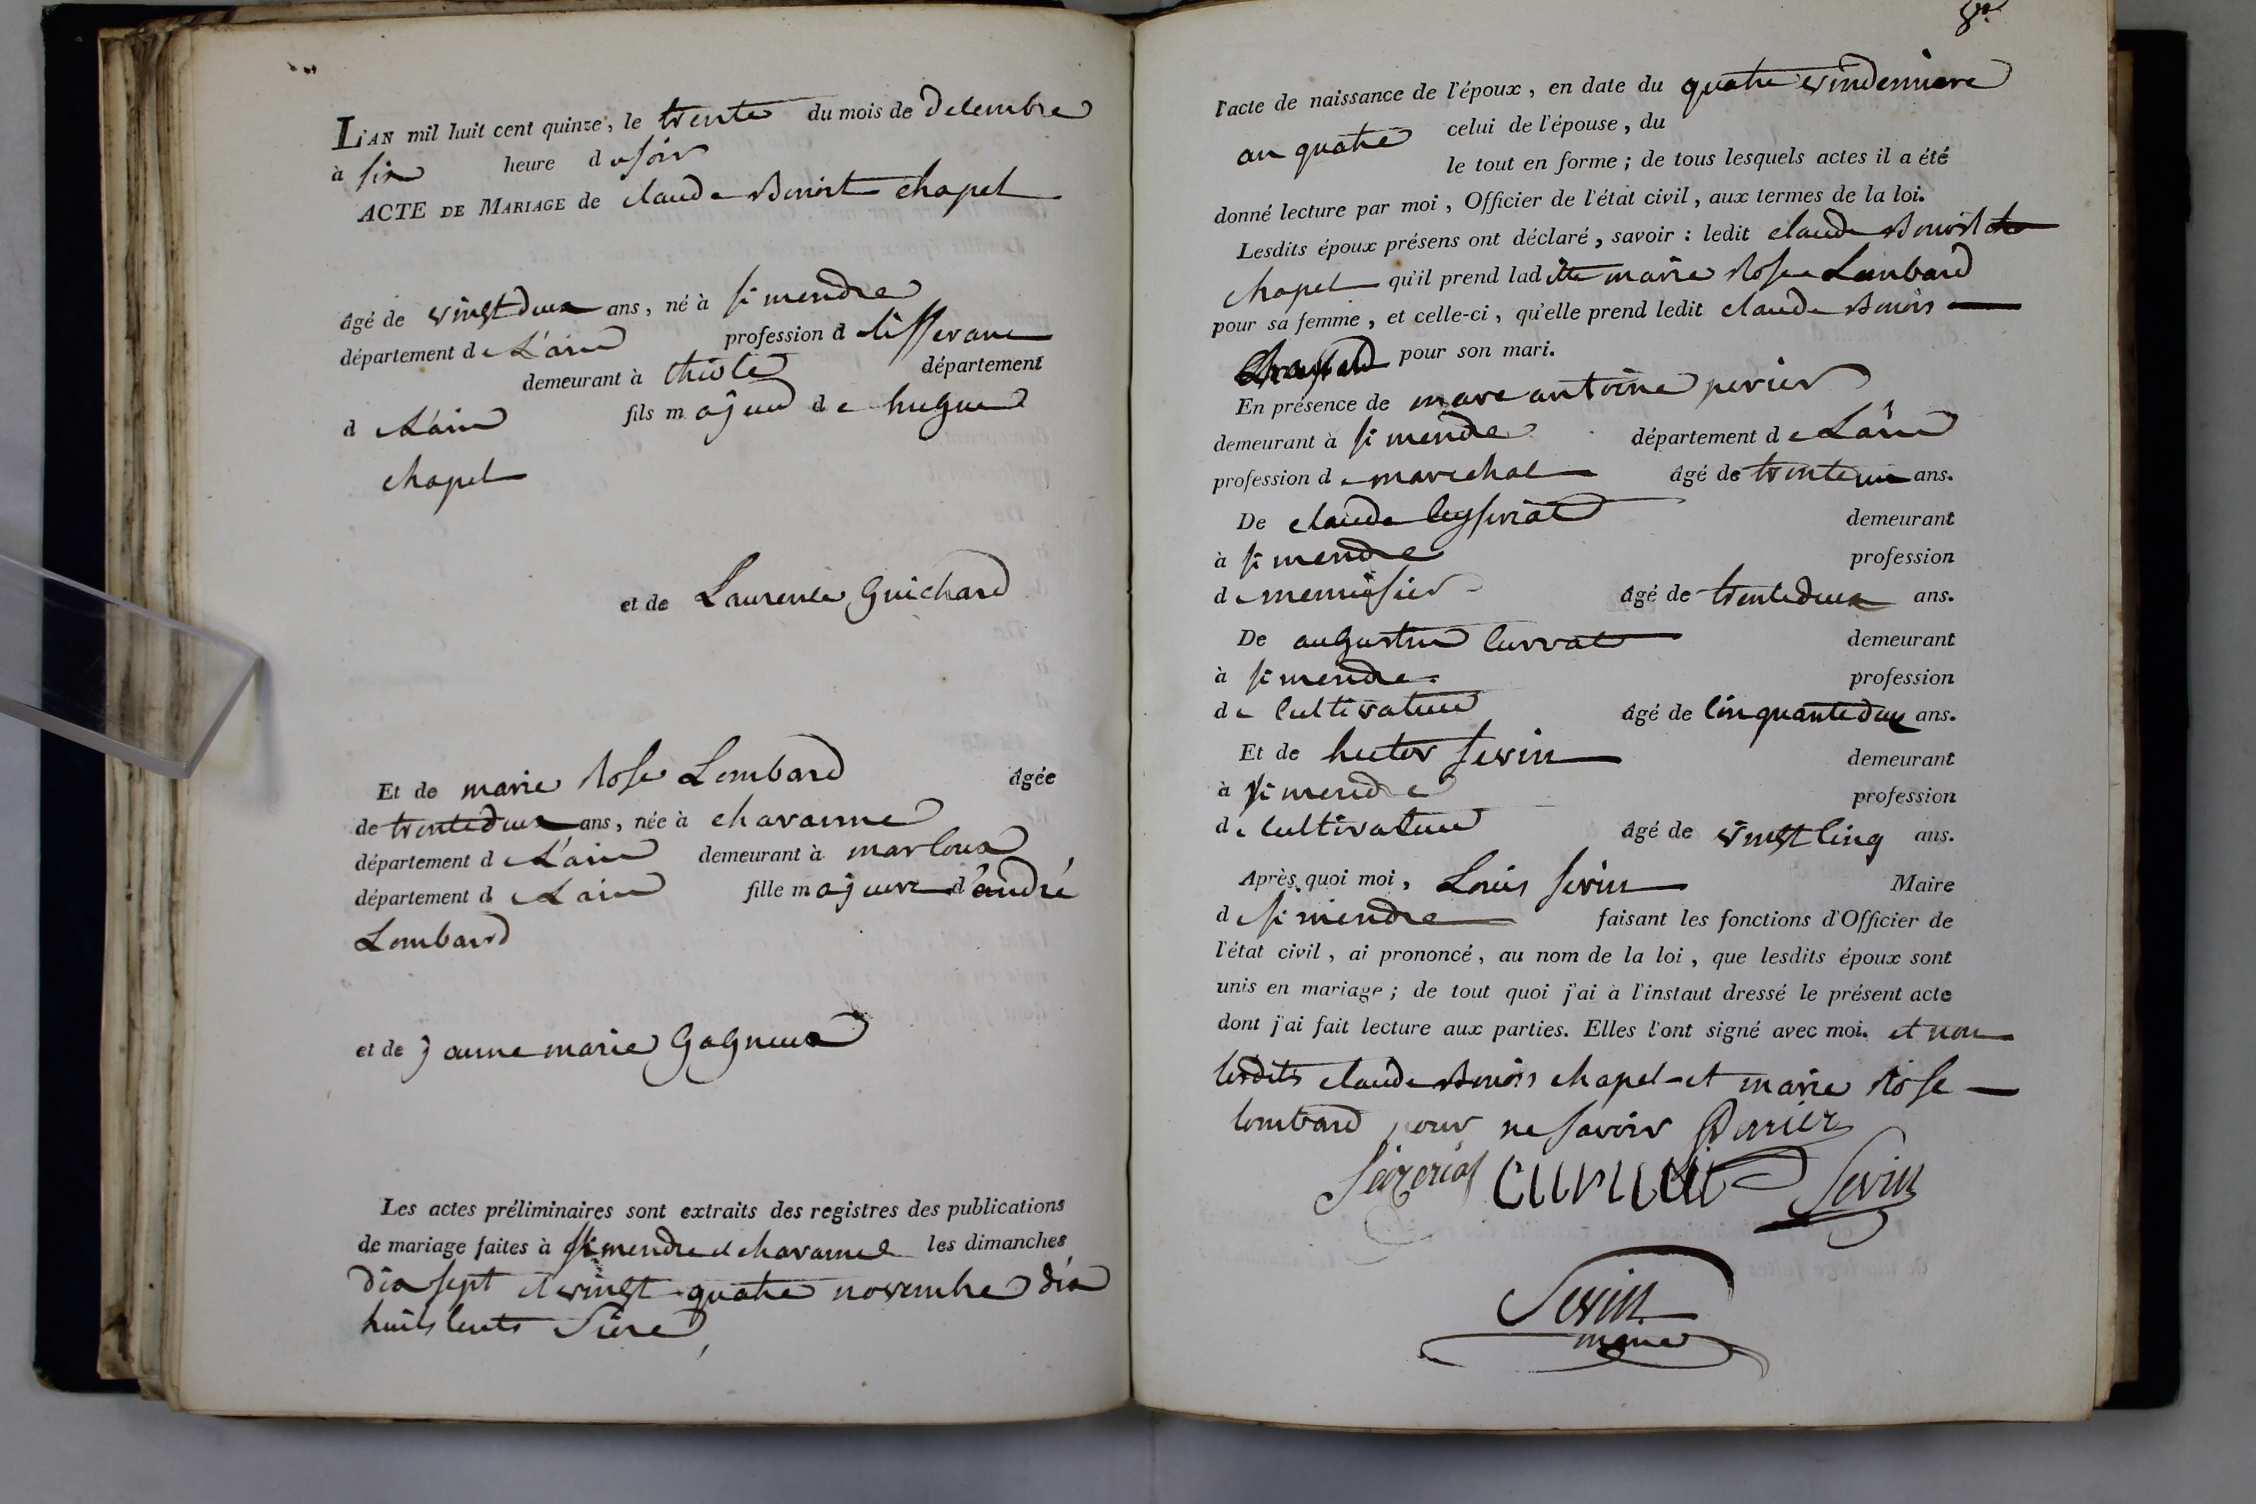 L'AN mil huit cent quinze, le trente du mois de décembre
à six heure du soir
ACTE DE MARIAGE de claude Benoit chapel
âgé de vingt deux ans, né à simendre
département de L'ain profession de tisserane
demeurant à département
d e L'ain fils majeur de hugue
chapel
et de Laurence Guichard
Et de marie Rose Lombard âgée
de trente deux ans, née à chavanne
département de L'ain demeurant à marloux
département de L'ain fille majeure d'andré
Lombard
et de janne marie Gagneux
Les actes préliminaires sont extraits des registres des publications
de mariage faites à simendre et chavanne les dimanches
dix sept et vingt quatre novembre dix
huits cents
8e
l'acte de naissance de l'époux, en date du quatre vindemiere
an quatre celui de l'épouse, du
le tout en forme; de tous lesquels actes il a été
donné lecture par moi, Officier de l'état civil, aux termes de la loi.
Lesdits époux présens ont déclaré, savoir: ledit claude Benoit
chapel qu'il prend laditte marie Rose Lombard
pour sa femme, et celle-ci, qu'elle prend ledit claude Benois
pour son mari.
En présence de marc antoine perier
demeurant à simendre département de L'ain
profession de marechal âgé de trente un ans.
De claude demeurant
à simendre profession
de menuisier âgé de trente deux ans.
De augustin Curvat demeurant
à simendre profession
de Cultivateur âgé de Cinquante deux ans.
Et de hector sevin demeurant
à simendre profession
de Cultivateur âgé de vingt Cinq ans.
Après quoi moi, Louis sevin Maire
de simendre faisant les fonctions d'Officier de
l'état civil, ai prononcé, au nom de la loi, que lesdits époux sont
unis en mariage; de tout quoi j'ai à l'instaut dressé le présent acte
dont j'ai fait lecture aux parties. Elles l'ont signé avec moi. et non
lesdits claude Benois chapel et marie Rose
lombard pour ne savoir Perrier
Sevin
Sevin
maire